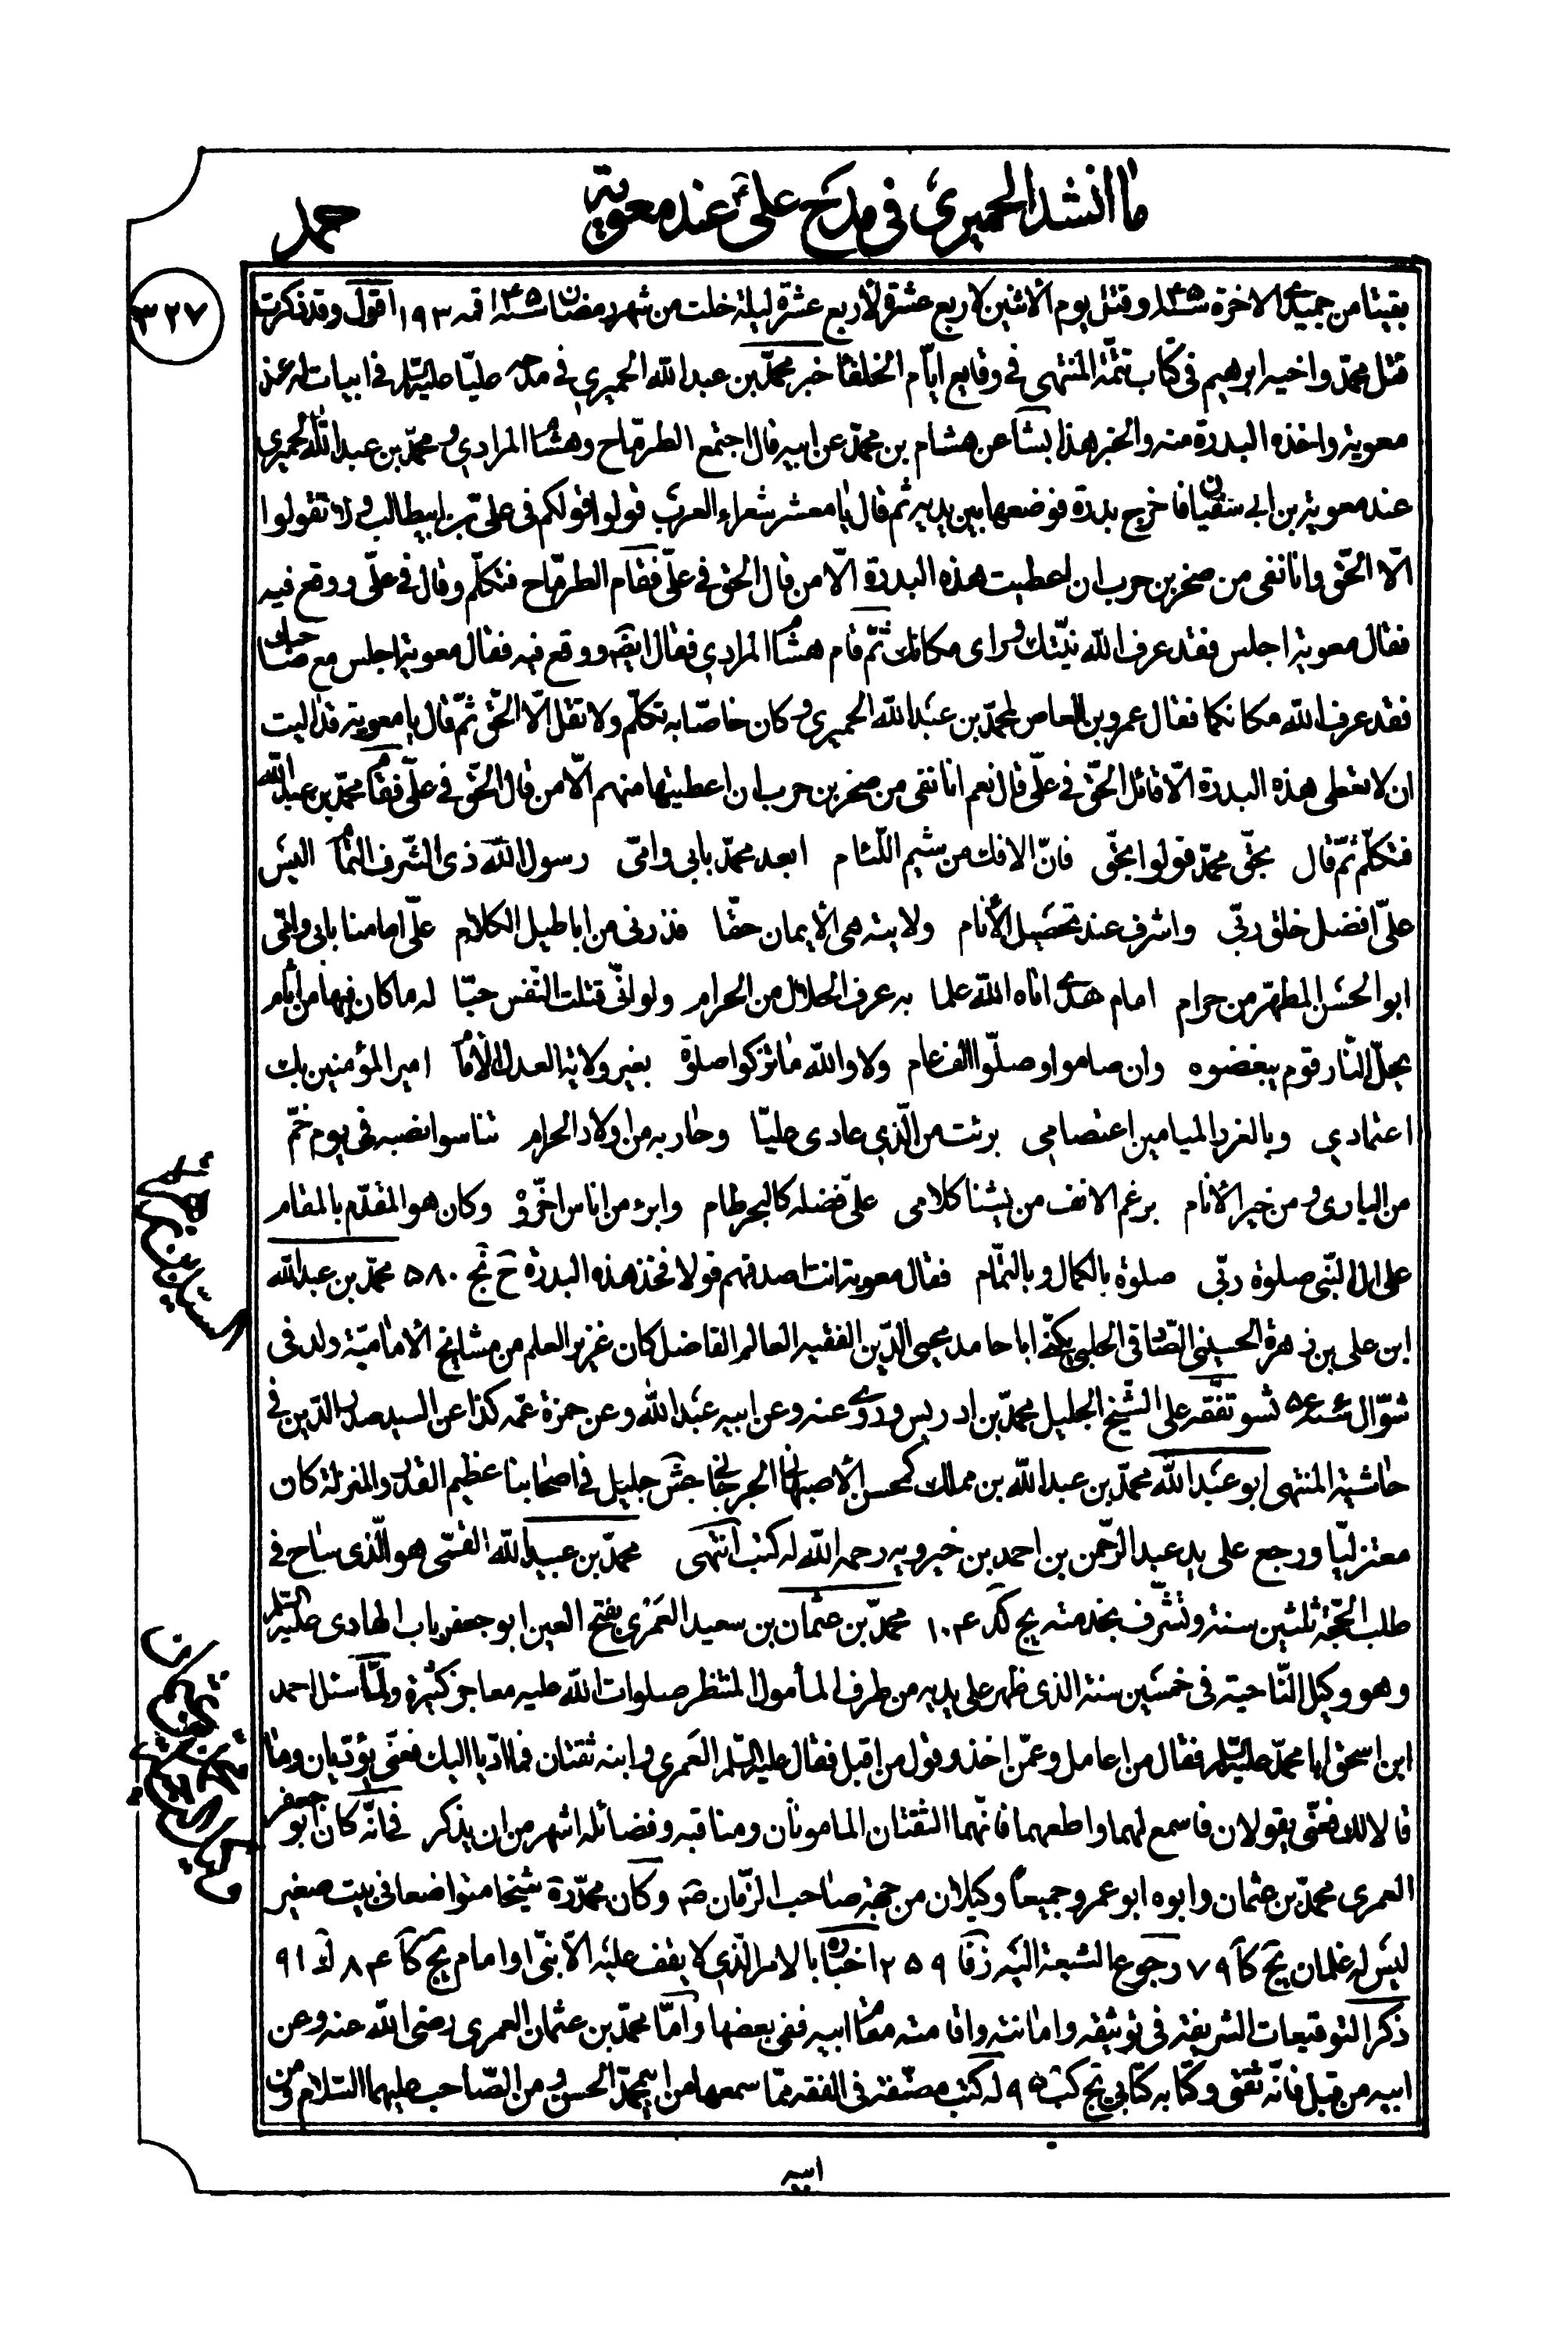 ما انشد الحميري في مدح علي ع عند معوية
حمد
٣٢٧
بقيتا من جميدى الاخرة سنة ١٤٥ وقتل يوم الاثنين لاربع عشرة لاربع عشرة ليلة خلت من شهر رمضان سنة ١٤٥ قمه ١٩٣ اقول وقد ذكرت
قتل محمد واخيه ابرهيم في كتاب تتمة المنتهى في وقايع ايام الخلفا خبر محمد بن عبد الله الحميري في مدحه عليا عليه السلم في ابيات له عند
معوية واخذه البدرة منه والخبر هذا بشا عن هشام بن محمد عن ابيه قال اجتمع الطرماح وهشام المرادي ومحمد بن عبد الله الحميري
عند معوية بن ابي سفيان فاخرج بدرة فوضعها بين يديه ثم قال يا معشر شعراء العرب قولوا قولكم في علي بن ابيطالب ولا تقولوا
الّا الحقّ وانا نفى من صخر بن حرب ان اعطيت هذه البدرة الّا من قال الحق في علىّ فقام الطرماح فتكلّم وقال في علىّ ووقع فيه
فقال معوية اجلس فقد عرف الله نيّتك وراى مكانك ثمّ قام هشام المرادي فقال ايضه ووقع فيه فقال معوية اجلس مع صاحبك
فقد عرف الله مكانكما فقال عمرو بن العاص لمحمد بن عبد الله الحميري وكان خاصا به تكلّم ولا تقل الّا الحقّ ثمّ قال يا معوية قد اليت
ان لا تعطى هذه البدرة الّا قائل الحقّ في علىّ قال نعم انا نفى من صخر بن حرب ان اعطيتها منهم الّا من قال الحقّ في علىّ فقام محمد بن عبد الله
فتكلّم ثمّ قال بحقّ محمد قولوا بحقّ فانّ الافك من شيم اللئام ابعد محمد بابي وامّى رسول الله ذى الشرف التمام اليس
علىّ افضل خلق ربّى واشرف عند تحصيل الأنام ولايته هى الأيمان حقّا فذرنى من اباطيل الكلام علىّ امامنا بابى وامّى
ابو الحسن المطهّر من حرام امام هدى اتاه الله علما به عرف الحلال من الحرام ولو انّى قتلت النّفس حبّا له ما كان فيها من اثام
يحلّ النّار قوم يبغضوه وان صاموا وصلّوا الف عام ولا والله ما تزكوا صلوة بغير ولاية العدل الأمام امير المؤمنين بك
اعتمادي وبالغرر الميامين اعتصامي برئت من الّذي عادى عليّا وحاربه من اولاد الحرام تناسوا نصبه في يوم خمّ
من البارى ومن خير الأنام برغم الانف من يشنا كلامى علىّ فضله كالبحر طام وابرء من اناس اخّروه وكان هو المقدّم بالمقام
على ال النّبى صلوة ربّى صلوة بالكمال وبالتّمام فقال معوية انت اصدقهم قولا فخذ هذه البدرة ح نج ٥٨٠ محمد بن عبد الله
ابن على بن زهرة الحسينى الصّادقى الحلبى يكنّى ابا حامد محيى الدّين الفقيه العالم الفاضل كان غزير العلم من مشايخ الأماميّة ولد في
شوّال سنة ٥٦٤ ثسو تفّقه على الشّيخ الجليل محمد بن ادريس وروى عنه وعن ابيه عبد الله وعن حمزة عمّه كذا عن السيد صدر الدّين في
حاشية المنتهى ابو عبد الله محمد بن عبد الله بن مملك كمحسن الأصبهانى الجرجانى جش جليل في اصحابنا عظيم القدر والمنزلة كان
معتزليّا ورجع على يد عبد الرّحمن بن احمد بن خيرويه رحمه الله له كتب انتهى محمد بن عبيد الله القمّى هو الّذى ساح في
طلب الحجّة ثلثين سنة وتشّرف بخدمته يج كد ١٠٤ محمد بن عثمان بن سعيد العمرى بفتح العين ابو جعفر باب الهادى عليه السّلم
وهو وكيل النّاحية في خمسين سنة الذى ظهر على يديه من طرف المأمول المنتظر صلوات الله عليه معاجز كثيرة ولمّا سئل احمد
ابن اسحق ابا محمد عليه السّلم فقال من اعامل وعمّن اخذ وقول من اقبل فقال عليه السّلم العمرى وابنه ثقتان فما ادّيا اليك فعنّى يؤدّيان وما
قالا لك فعنّى يقولان فاسمع لهما واطعهما فانّهما الثقتان المامونان ومناقبه وفضائله اشهر من ان يذكر في انّه كان ابو جعفر
العمرى محمد بن عثمان وابوه ابو عمرو جميعا وكيلان من جهة صاحب الزمان صه وكان محمد ره شيخا متواضعا في بيت صغير
ليس له غلمان يج كا ٧٩ رجوع الشيعة اليه زفا ٢٥٩ اخباره بالامر الّذي لا يقف عليه الّا نبىّ او امام يج كا ٨٤ لا ٩١
ذكر التوقيعات الشريفة في توثيقه وامانته واقامته مقام ابيه ففى بعضها وامّا محمد بن عثمان العمرى رضى الله عنه وعن
ابيه من قبل فانّه ثقتى وكتابه كتابى يج كب ٩٥ له كتب مصنّفة في الفقه ممّا سمعها من ابيمحمّد الحسن ومن الصّاحب عليهما السّلام ومن
ابيه